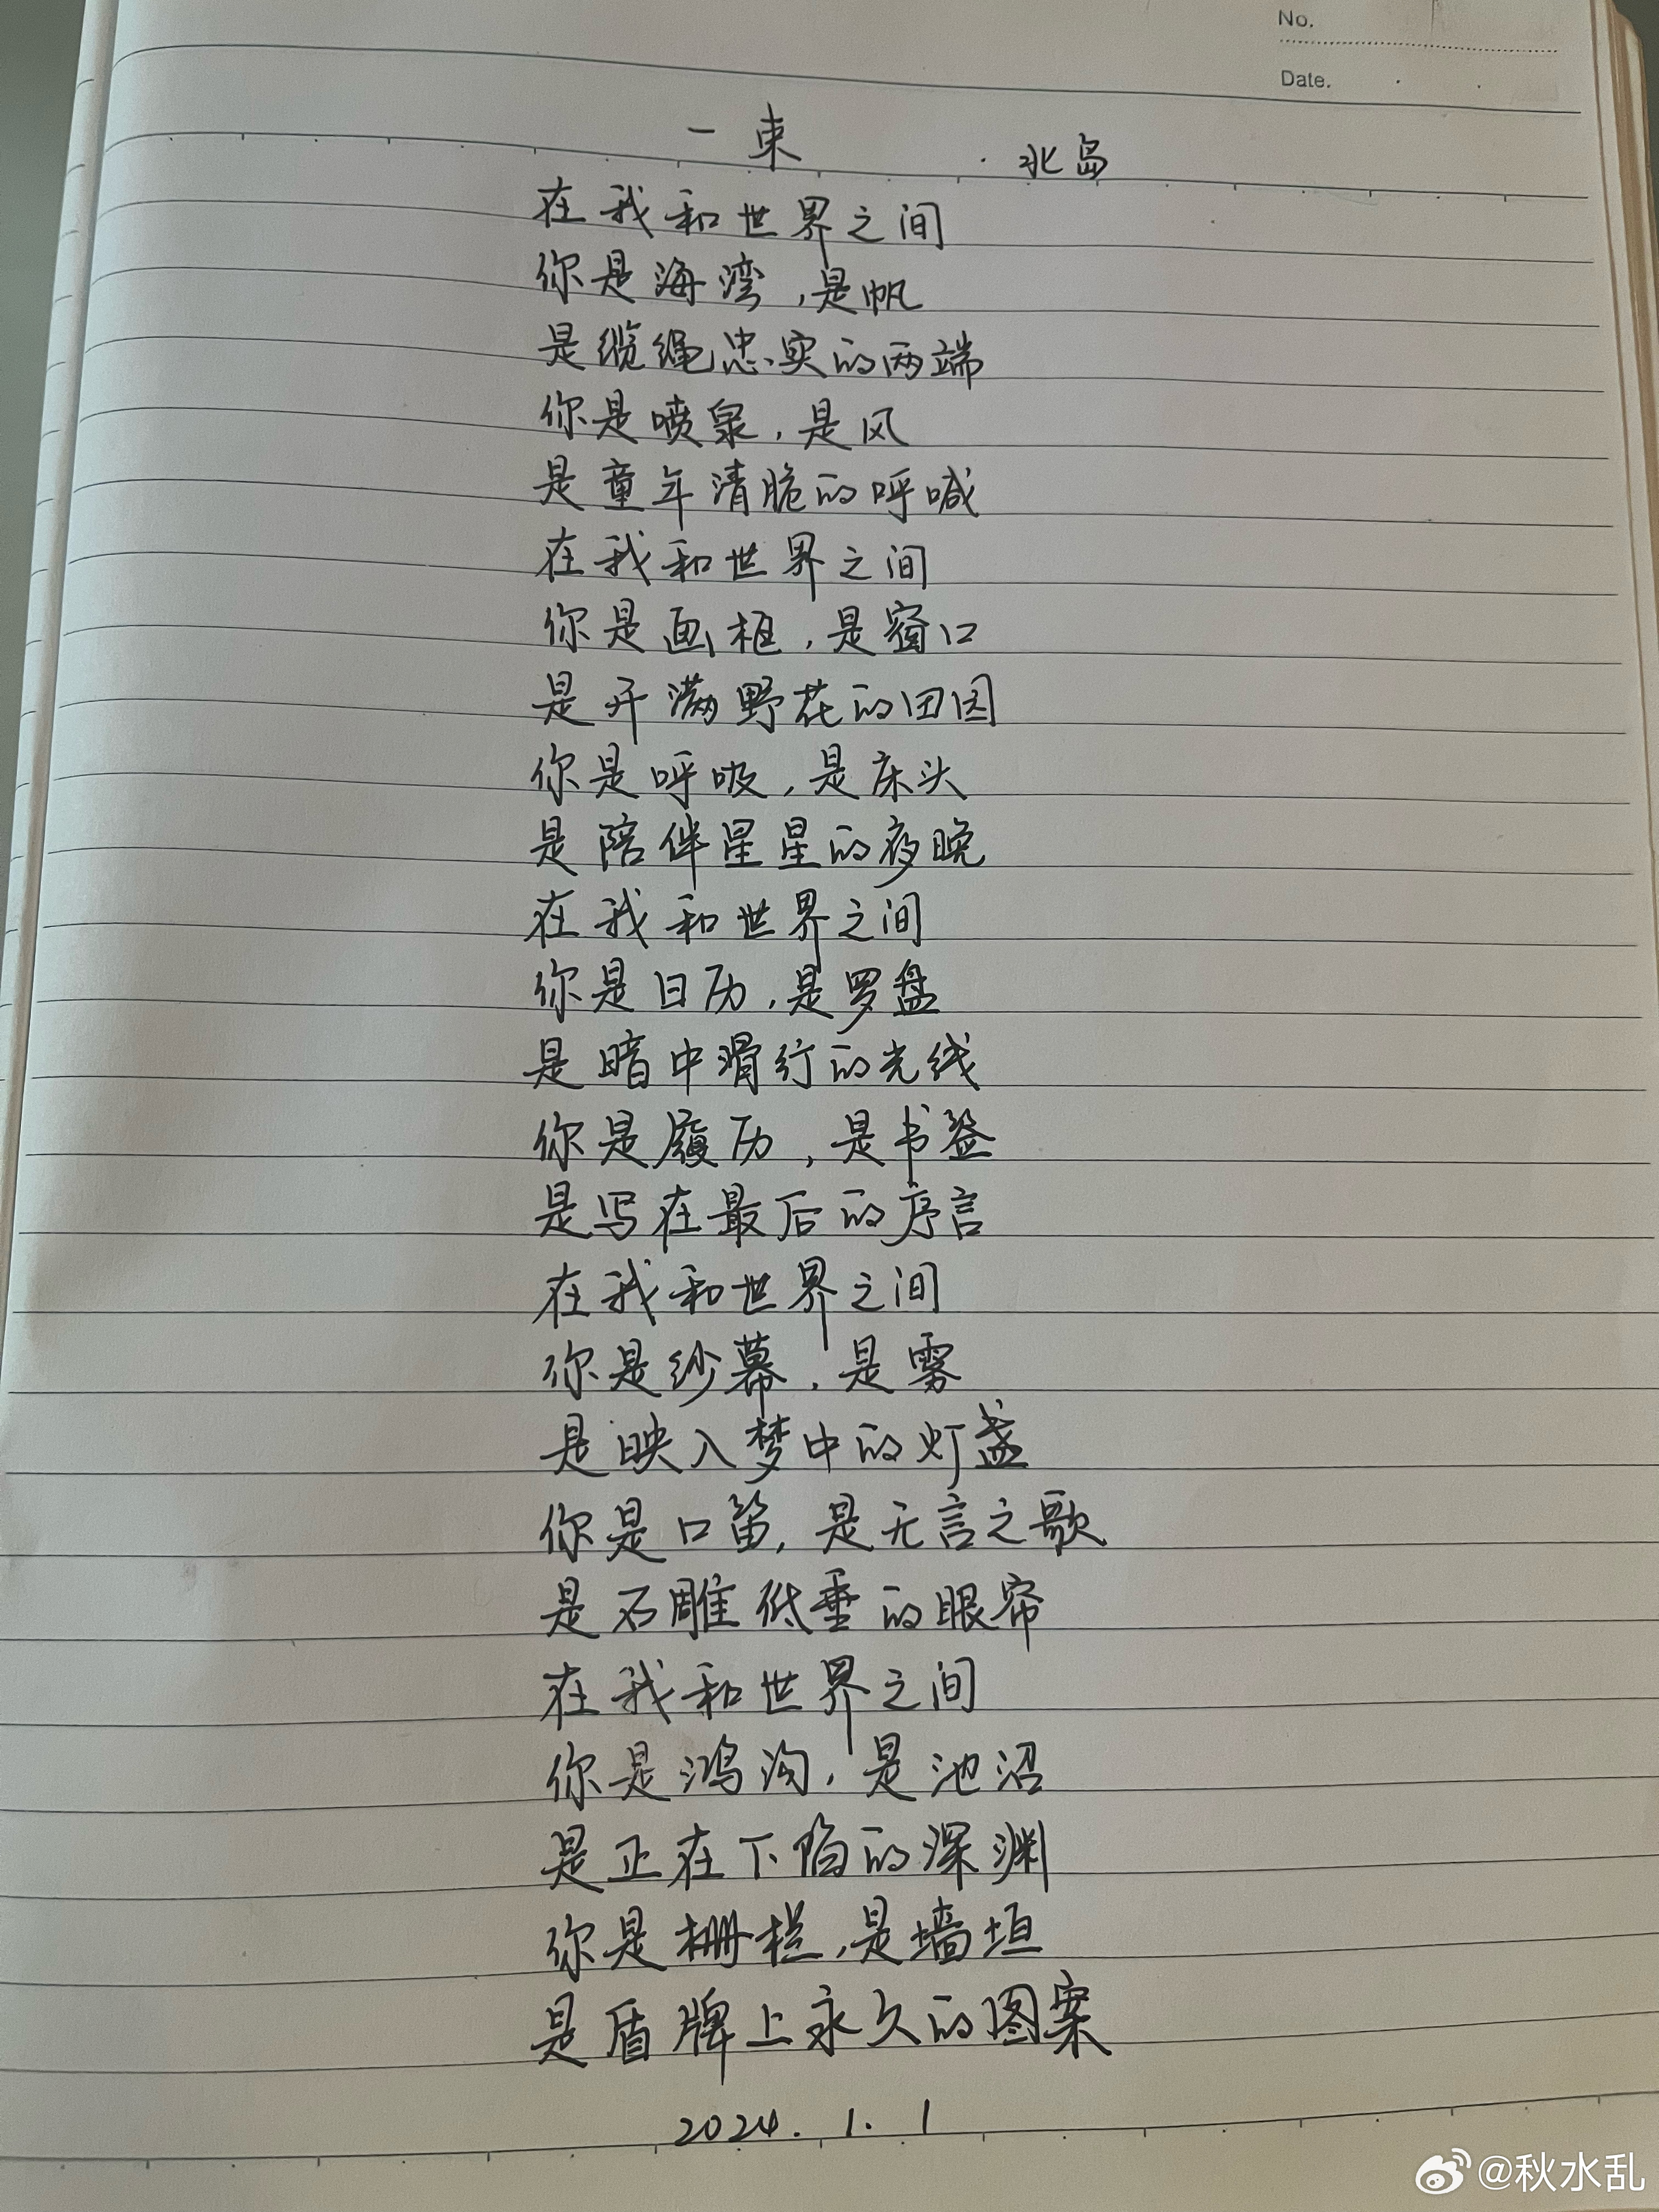 No.
Date.
一束
·北岛
在我和世界之间
你是海湾,是帆
是缆绳忠实的两端
你是喷泉,是风
是童年清脆的呼喊
在我和世界之间
你是画框,是窗口
是开满野花的田园
你是呼吸,是床头
是陪伴星星的夜晚
在我和世界之间
你是日历,是罗盘
是暗中滑行的光线
你是履历,是书签
是写在最后的序言
在我和世界之间
你是纱幕,是雾
是映入梦中的灯盏
你是口笛,是无言之歌
是石雕低垂的眼帘
在我和世界之间
你是鸿沟,是池沼
是正在下陷的深渊
你是栅栏,是墙垣
是盾牌上永久的图案
2024.1.1
@秋水乱